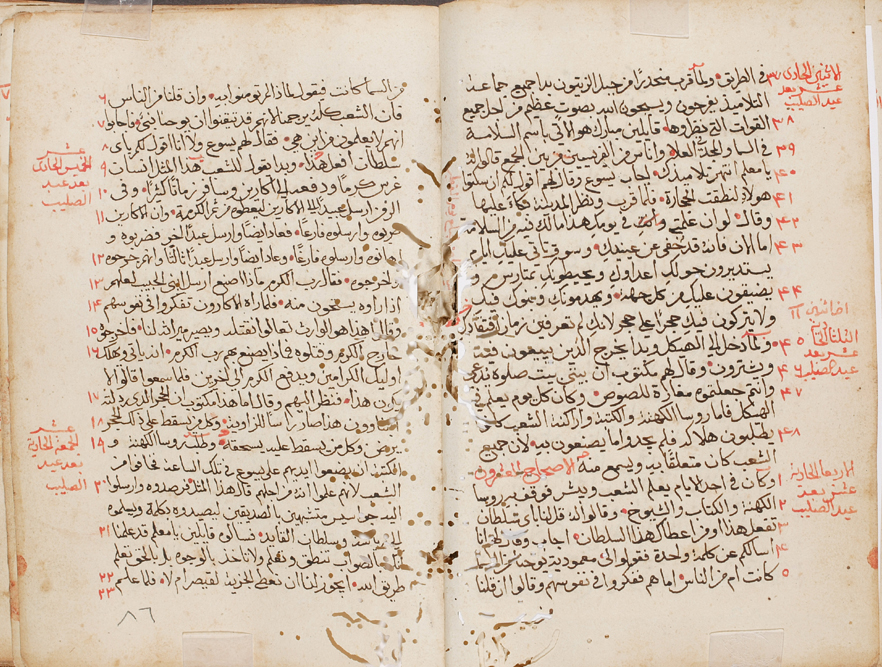 في الطريق ٣٧ ولما قرب منحدرًا من جبل الزيتون بدا جميع جماعة
التلاميذ يفرحون ويسبحون الله بصوت عظيم من اجل جميع
القوات التي نظروها ٣٨ قايلين مبارك هو الاتي باسم السلامة
في السما والمجد في العلا ٣٩ واناس من الفريسيين من بين الجمع قالوا له
يا معلم انتهر تلاميدك ٤٠ اجاب يسوع وقال لهم اقول لكم ان سكتوا
هولاء لنطقت الحجارة ٤١ فلما قرب ونظر المدينة بكا عليها
٤٢ وقال لو ان علمتي وانت في يومك هذا مالك فيه من السلامة
٤٣ اما الان فانه قد خفي عن عينيك وسوف تاتي عليك ايام
يستديرون حولك اعداوك ويحيطونك بمتارس و
٤٤ يضيقون عليك من كل جهة ويهدمونك وبنوك فيك
ولا يتركون فيك حجرًا على حجر لانك لم تعرفين زمان افتقادك
٤٥ ولما دخل الى الهيكل وبدا يخرج الذين يبيعون فيه
٤٦ ويشترون وقال لهم مكتوب ان بيتي بيت صلوة يدعى
وانتم جعلتموه مغارة للصوص ٤٧ وكان كل يوم يعلم في
الهيكل فاما روسا الكهنة والكتبة واراكنة الشعب كانوا
٤٨ يطلبون هلاكه فلم يجدوا ما يصنعون به لان جميع
الشعب كان متعلقًا به ويسمع منه الاصحاح العشرون
١ وكان في احد الايام يعلم الشعب ويبشر فوقف به روسا
٢ الكهنة والكتاب والشيوخ وقالوا له قل لنا باي سلطان
٣ تفعل هذا ومن اعطاك هذا السلطان اجاب وقال لهم انا
٤ اسالكم عن كلمة واحدة فقولوا لي معمودية يوحنا من السما
٥ كانت ام من الناس اما هم ففكروا في نفوسهم وقالوا ان قلنا
الاثنين الحادي
عشر بعد
عيد الصليب
الثلثا الحادي
عشر بعد
عيد الصليب
الاربعا الحادي
عشر بعد
عيد الصليب
من السما كانت فيقول لماذا لم تومنوا به ٦ وان قلنا من الناس
فان الشعب كله يرجمنا لانهم قد تيقنوا ان يوحنا نبي ٧ فاجابوا
انهم لا يعلمون من اين هي ٨ فقال لهم يسوع ولا انا اقول لكم باي
سلطان افعل هذا ٩ وبدا يقول للشعب هذا المثل انسان
غرس كرمًا ودفعه الى الاكارين وسافر زمانًا كثيرًا ١٠ وفي
الزمن ارسل عبده الى الاكارين ليعطوه من ثمر الكرمة وان الاكارين
ضربوه وارسلوه فارغًا ١١ فعاد ايضًا وارسل عبدًا اخر فضربوه و
اهانوه وارسلوه فارغًا ١٢ وعاد ايضًا وارسل عبدًا ثالثًا وانهم جرحوه
واخرجوه ١٣ فقال رب الكرم ماذا اصنع ارسل ابني الحبيب لعلهم
اذا راوه يستحون منه ١٤ فلما راه الاكارون تفكروا في نفوسهم
وقالوا هذا هو الوارث تعالوا نقتله ويصير ميراثه لنا ١٥ فاخرجوه
خارج الكرم وقتلوه فماذا يصنع بهم رب الكرم ١٦ انه ياتي ويهلك
اوليك الكرامين ويدفع الكرم الى اخرين فلما سمعوا قالوا لا
يكون هذا ١٧ فنظر اليهم وقال اما هذا مكتوب ان الحجر الذي رذله
البناوون هذا صار راسًا للزاوية ١٨ وكل من يسقط على ذلك الحجر
يترضض وكل من يسقط عليه يسحقه ١٩ وطلب روسا الكهنة و
الكتبة ان يضعوا ايديهم على يسوع في تلك الساعة فخافوا من
الشعب لانهم علموا انه من اجلهم قال هذا المثل ٢٠ فرصدوه وارسلوا
اليه جواسيس متشبهين بالصديقين ليصيدوه بكلمة ويسلموه
الى وسلطان القايد ٢١ فسالوه قايلين يا معلم قد علمنا
انك بالصواب تنطق وتعلم ولا تاخذ بالوجوه بل بالحق تعلم
طريق الله ٢٢ ايجوز لنا ان نعطي الجزية لقيصر ام لا ٢٣ فلما علم
الخميس الحادي
عشر
بعد عيد
الصليب
الجمعة الحادية
عشر
بعد عيد
الصليب
٨٦